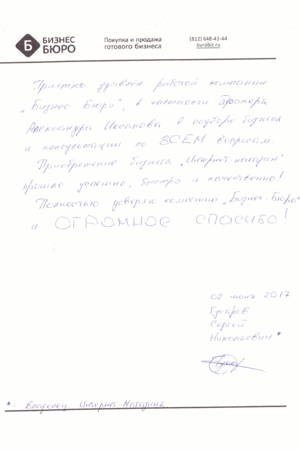 БИЗНЕС
БЮРО
Покупка и продажа
готового бизнеса
(812) 648-43-44
burobiz.ru
Приятно удивлён работой компании
„Бизнес Бюро“, в частности брокера
Александра в подборе бизнеса
и консультации по ВСЕМ вопросам.
Приобретение бизнеса „Интернет-магазин“
прошло успешно, быстро и качественно!
Полностью доверяю компании „Бизнес-Бюро“
и ОГРОМНОЕ СПАСИБО!
02 июня 2017
Сергей
Николаевич*
* Владелец Интернет-Магазина